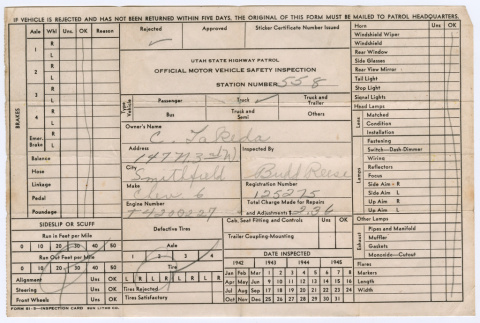 IF VEHICLE IS REJECTED AND HAS NOT BEEN RETURNED WITHIN FIVE DAYS, THE ORIGINAL OF THIS FORM MUST BE MAILED TO PATROL HEADQUARTERS.
Axle Whl Uns OK Reason
BRAKES
1 R
L
2 R
L
3 R
L
4 R
L
Emer. Brake R
L
Balance
Hose
Linkage
Pedal
Poundage
SIDESLIP OR SCUFF
Run in Feet per Mile
0 10 20 30 40 50
Run Out Feet per Mile
0 10 20 30 40 50
Alignment Uns OK
Steering Uns OK
Front Wheels Uns OK
FORM 61-B—INSPECTION CARD
Rejected Approved Sticker Certificate Number Issued
UTAH STATE HIGHWAY PATROL
OFFICIAL MOTOR VEHICLE SAFETY INSPECTION
STATION NUMBER 558
Type Vehicle
Passenger Truck Truck and Trailer
Bus Truck and Semi Others
Owner's Name
Address Inspected By
City
Smithfield Budd Reese
Make Registration Number
Chev 6 125275
Engine Number Total Charge Made for Repairs and Adjustments $ 2.36
Defective Tires
Axle
1 2 3 4
Tire
L R L R L R L R
Tires Rejected
Tires Satisfactory
Cab, Seat Fitting and Controls Uns OK
Trailer Coupling-Mounting
DATE INSPECTED
1942 1943 1944 1945
Jan Feb Mar 1 2 3 4 5 6 7 8
Apr May Jun 9 10 11 12 13 14 15 16
Jul Aug Sep 17 18 19 20 21 22 23 24
Oct Nov Dec 25 26 27 28 29 30 31
Horn Uns OK
Windshield Wiper
Windshield
Rear Window
Side Glasses
Rear View Mirror
Tail Light
Stop Light
Signal Lights
Head Lamps
Lens
Matched
Condition
Installation
Fastening
Switch—Dash-Dimmer
Lamps
Wiring
Reflectors
Focus
Side Aim - R
Side Aim - L
Up Aim R
Up Aim L
Other Lamps
Exhaust
Pipes and Manifold
Muffler
Gaskets
Monoxide—Cutout
Flares
Markers
Length
Width